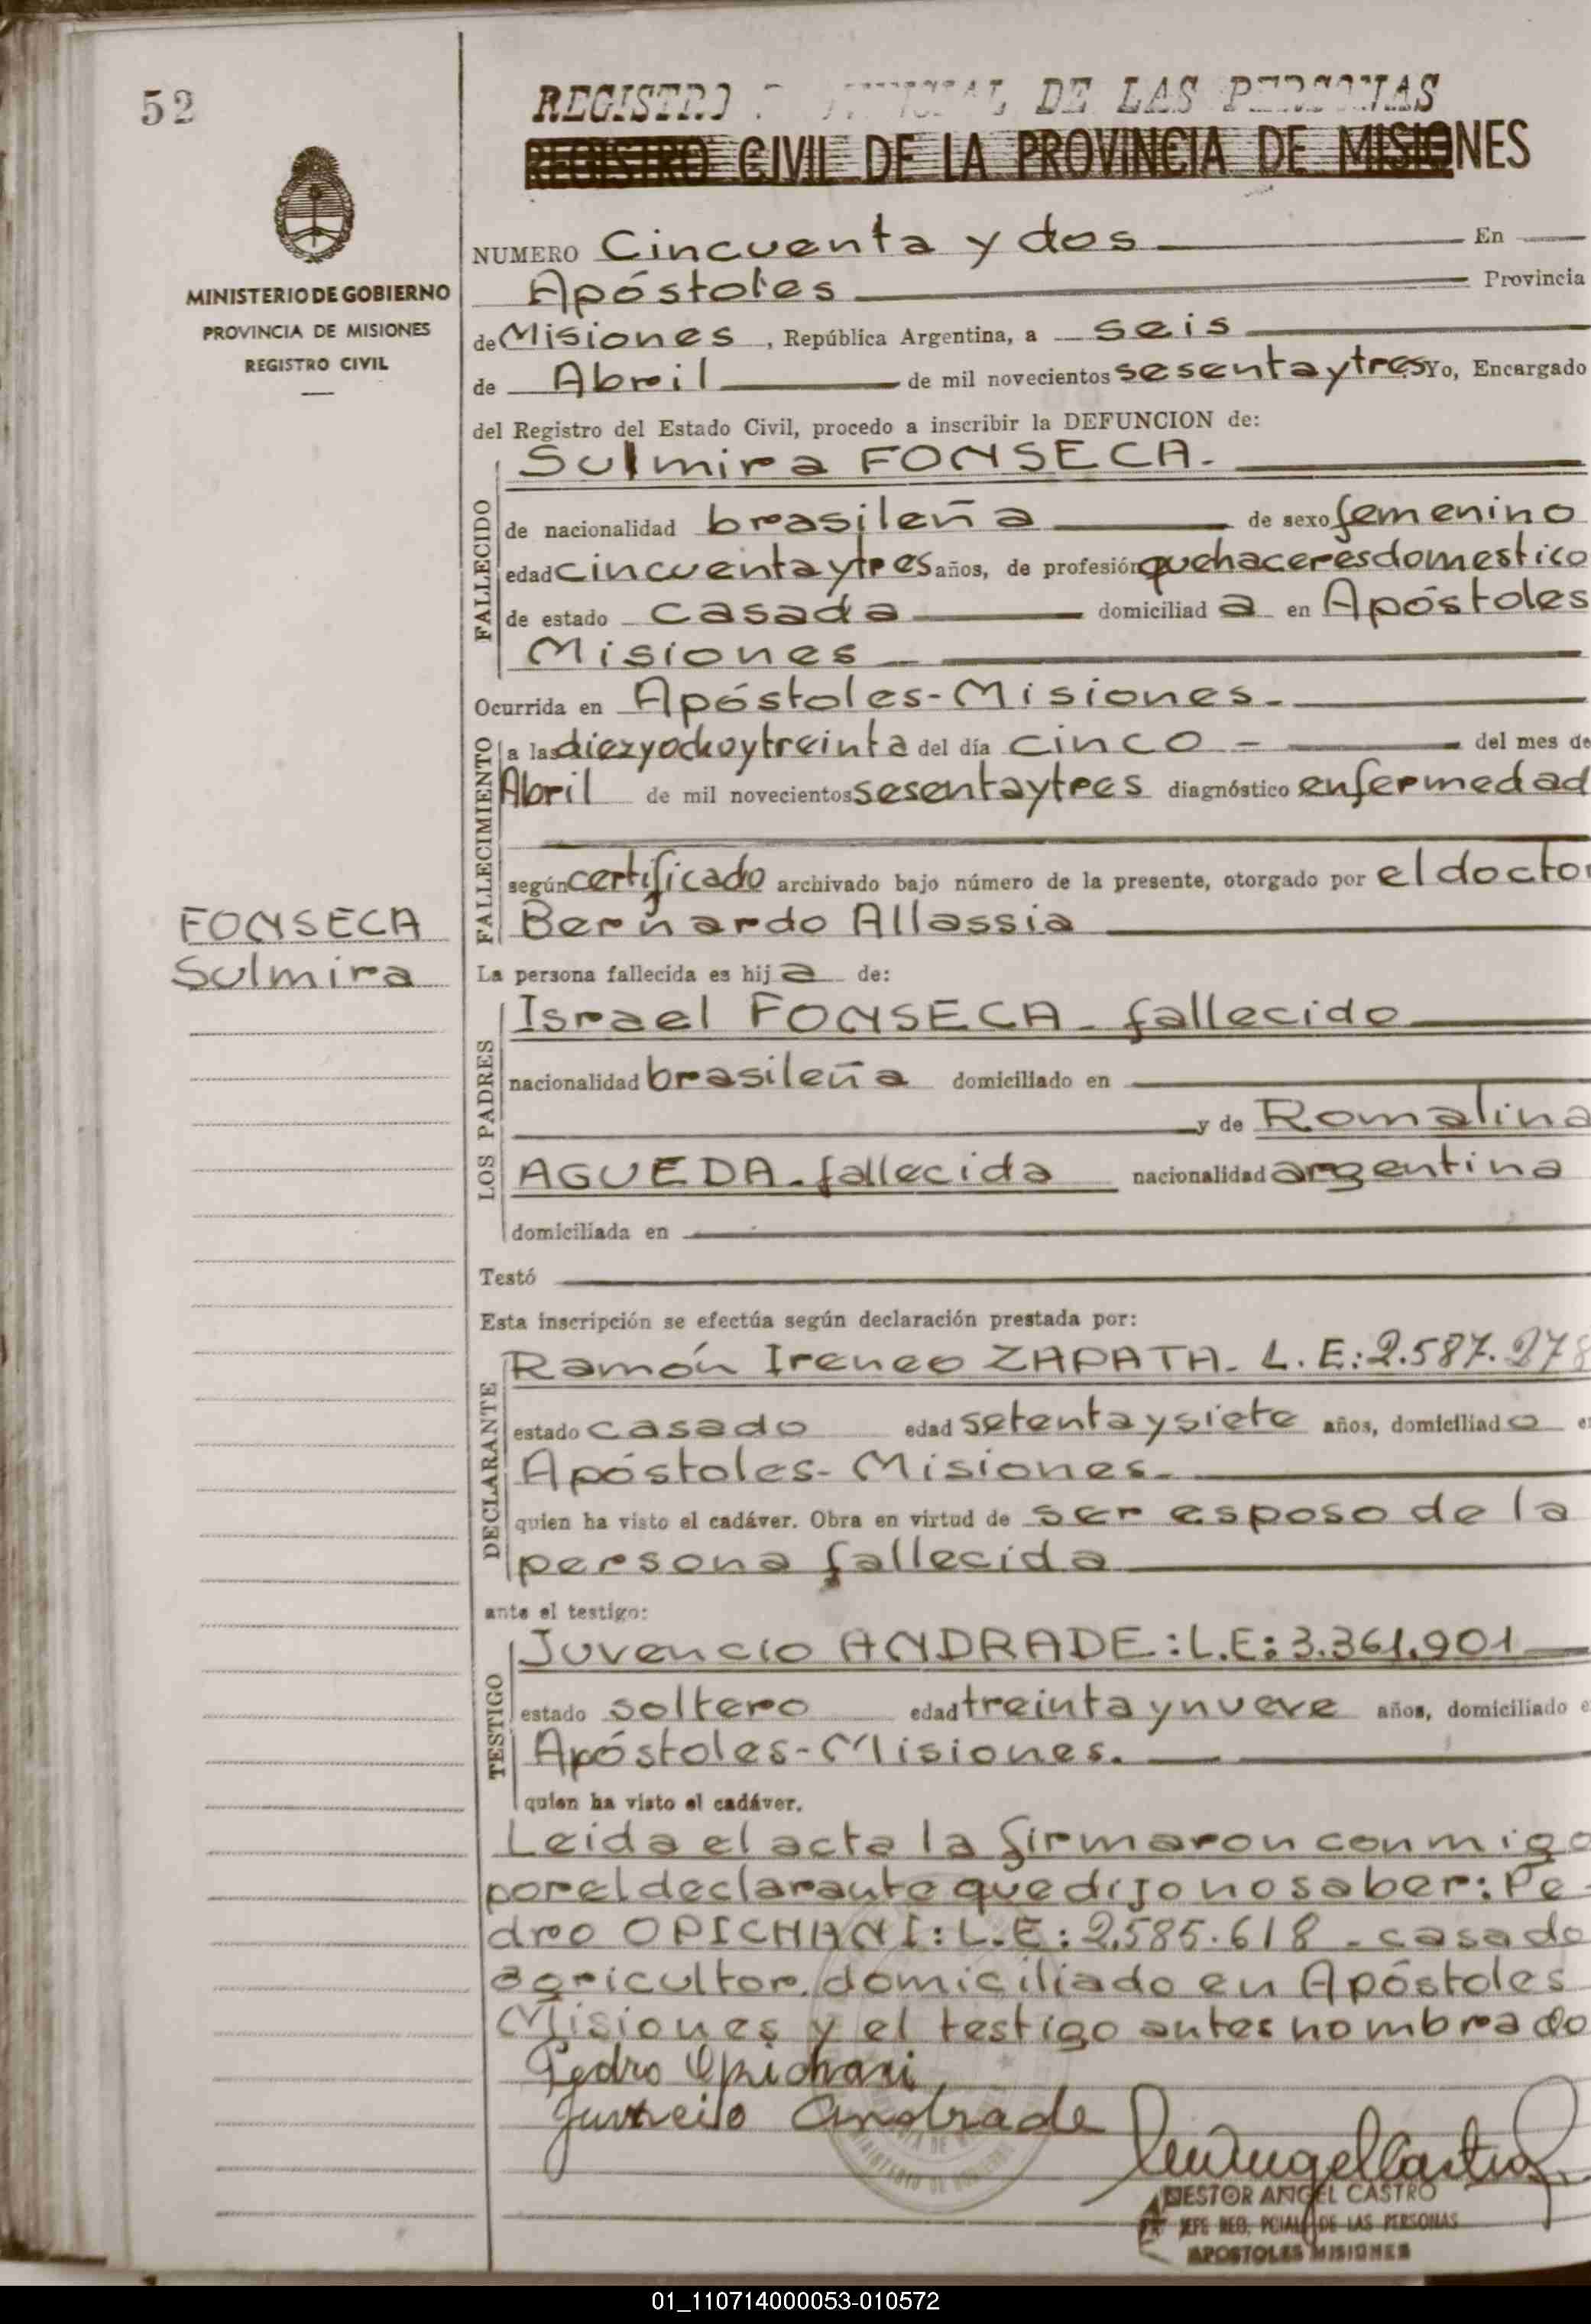 52
REGISTRO DE LAS PERSONAS
REGISTRO CIVIL DE LA PROVINCIA DE MISIONES
MINISTERIO DE GOBIERNO
PROVINCIA DE MISIONES
REGISTRO CIVIL
NUMERO Cincuenta y dos En
Apóstoles Provincia
de Misiones, República Argentina, a seis
de Abril de mil novecientos sesentaytres Yo, Encargado
del Registro del Estado Civil, procedo a inscribir la DEFUNCION de:
FALLECIDO
Sulmira FONSECA.
de nacionalidad brasileña de sexo femenino
edad cincuentaytres años, de profesión quehaceresdomestico
de estado casada domiciliad a en Apóstoles
Misiones
Ocurrida en Apóstoles-Misiones.
FALLECIMIENTO
a las diezyochoytreinta del día cinco - del mes de
Abril de mil novecientos sesentaytres diagnóstico enfermedad
según certificado archivado bajo número de la presente, otorgado por el doctor
Bernardo Allassia
FONSECA
Sulmira
La persona fallecida es hij a de:
LOS PADRES
Israel FONSECA - fallecido
nacionalidad brasileña domiciliado en
y de Romalina
AGUEDA - fallecida nacionalidad argentina
domiciliada en
Testó
Esta inscripción se efectúa según declaración prestada por:
DECLARANTE
Ramón Ireneo ZAPATA - L.E: 2.587.278
estado casado edad setentaysiete años, domiciliad o e
Apóstoles - Misiones.
quien ha visto el cadáver. Obra en virtud de ser esposo de la
persona fallecida
ante el testigo:
TESTIGO
Juvencio ANDRADE: L.E: 3.361.901
estado soltero edad treintaynueve años, domiciliado e
Apóstoles-Misiones.
quien ha visto el cadáver.
Leida el acta la firmaron conmigo
por el declarante que dijo no saber: Pe-
dro OPICHANI: L.E: 2.585.618 - casado
agricultor, domiciliado en Apóstoles
Misiones y el testigo antes nombrado
Pedro Opichani
Juvencio Andrade
NESTOR ANGEL CASTRO
JEFE REG. PCIAL DE LAS PERSONAS
APOSTOLES MISIONES
01_110714000053-010572